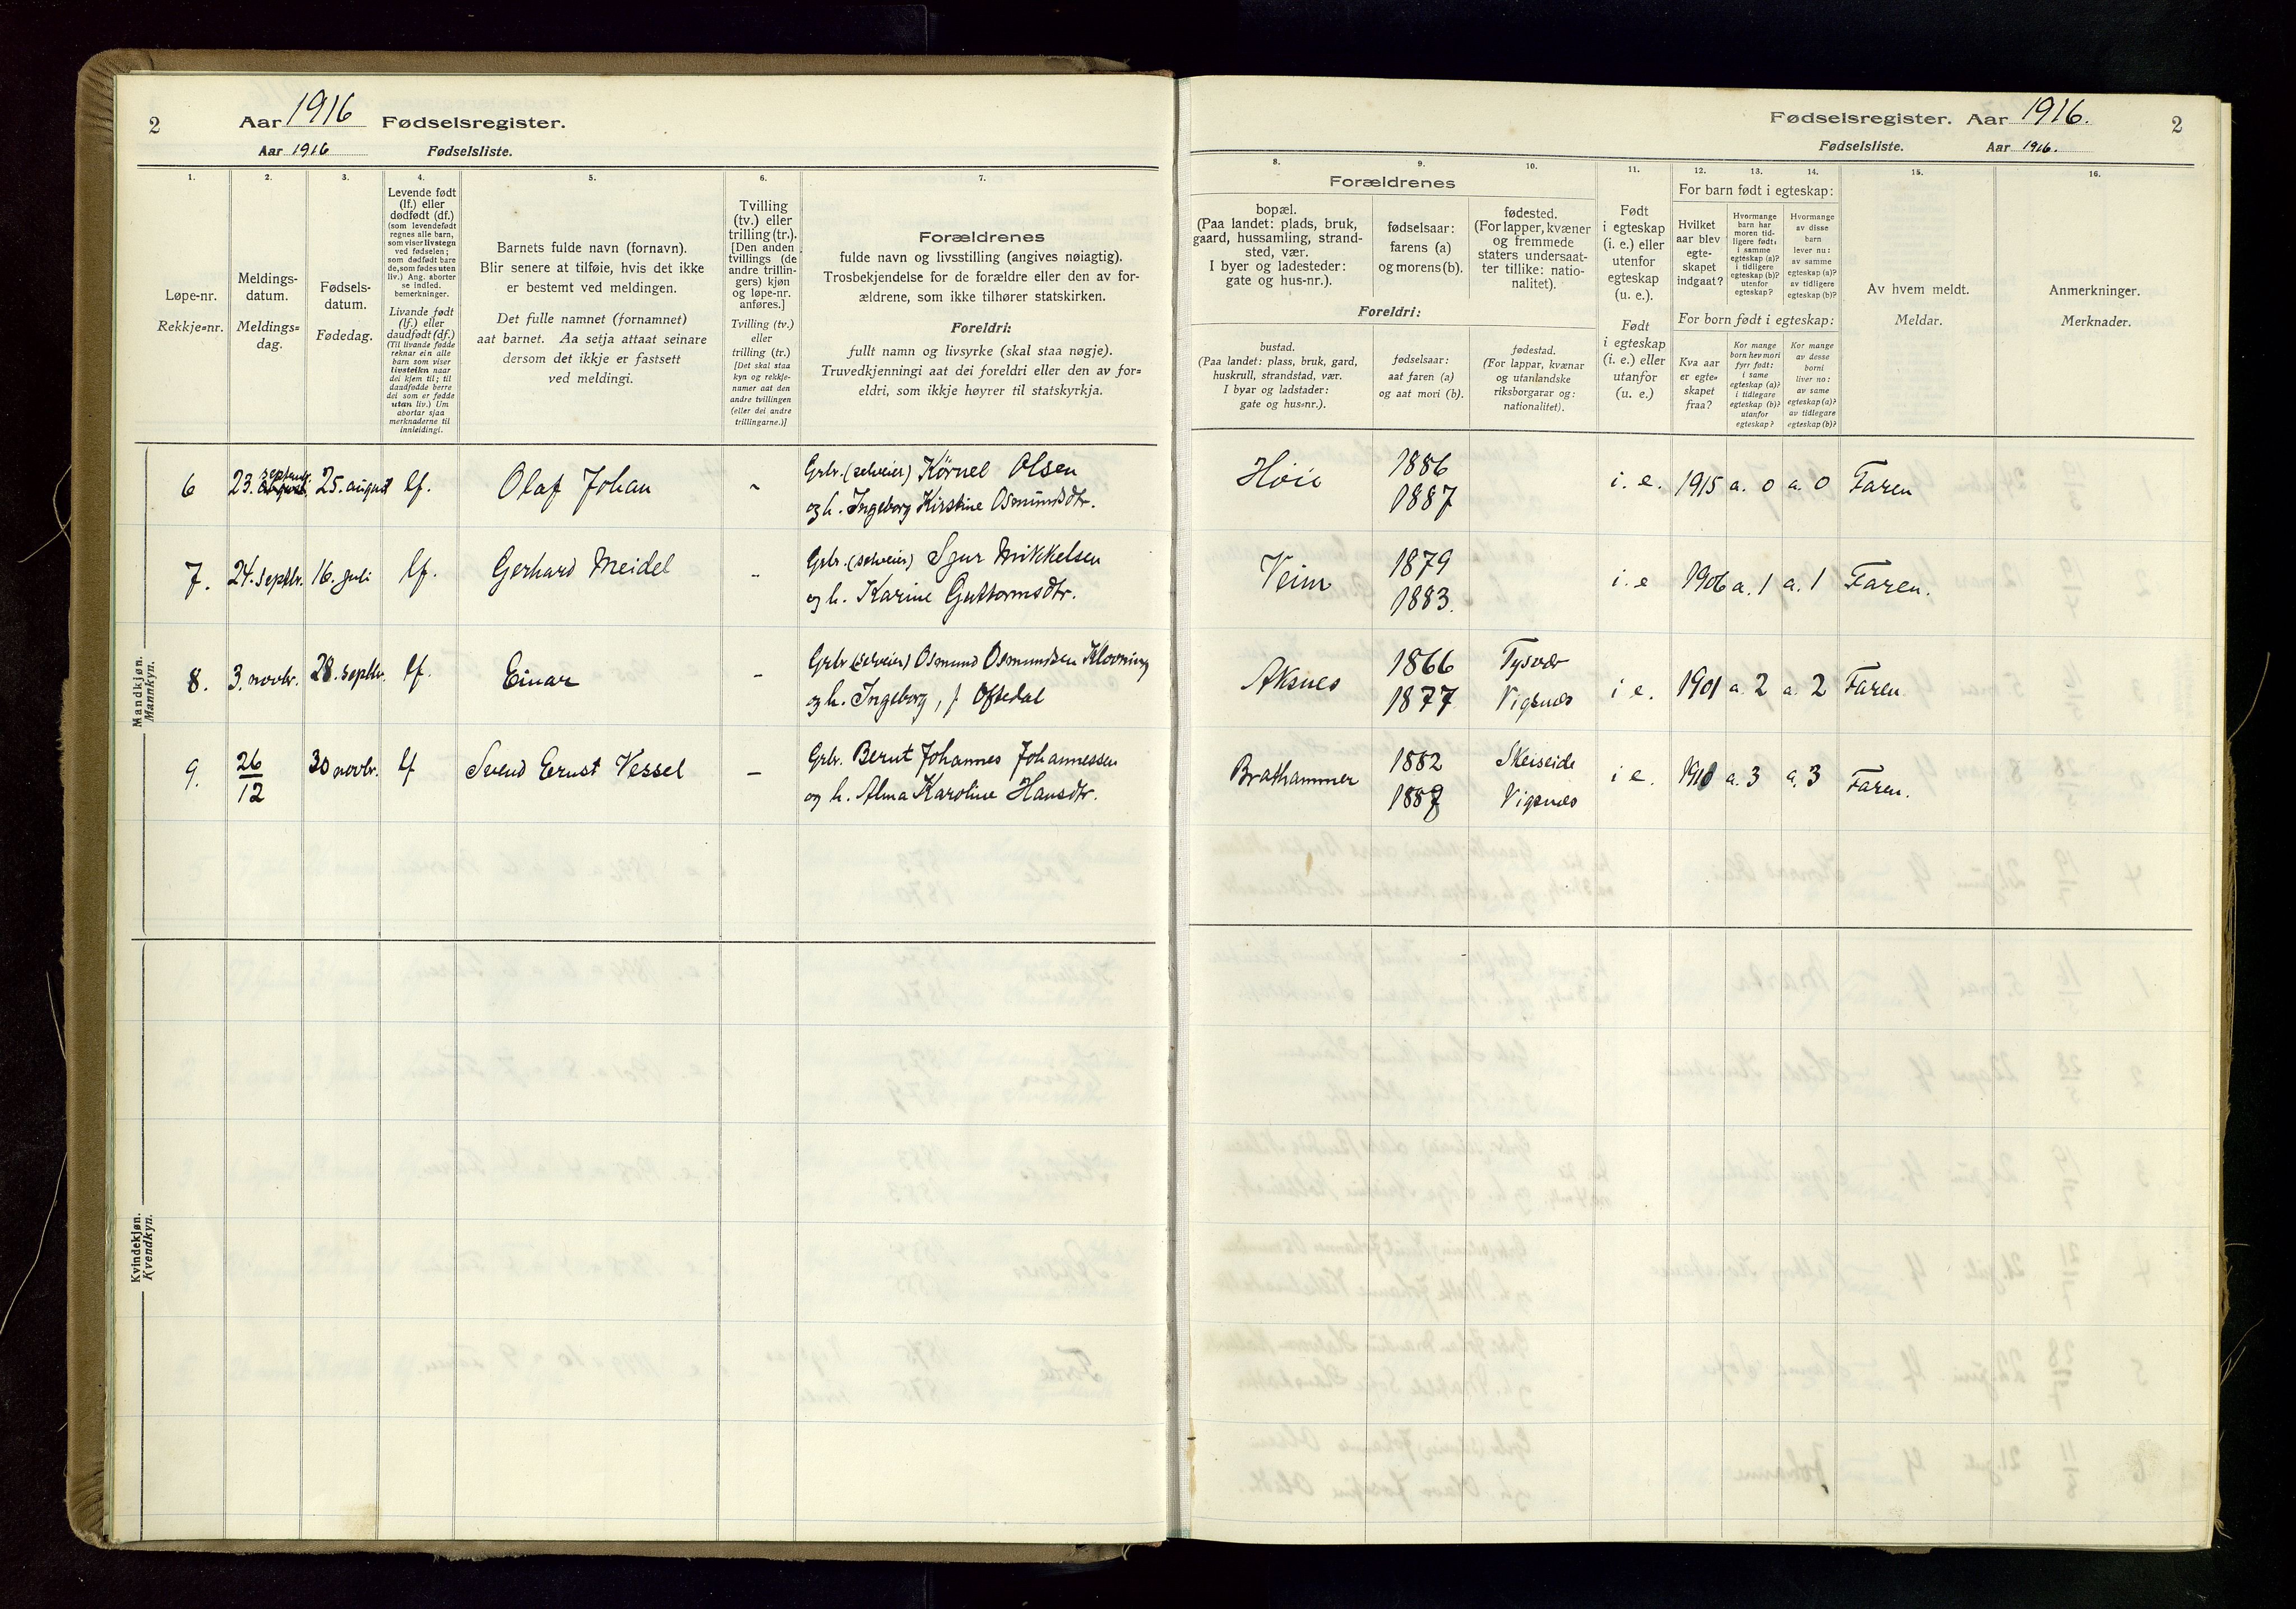 2
Aar 1916 Fødselsregister.
Aar 1916 Fødselsliste.
1.
2.
3.
4.
5.
6.
7.
Løpe-nr.
Rekkje-nr.
Meldings-
datum.
Meldings-
dag.
Fødsels-
datum.
Fødedag.
Levende født
(lf.) eller
dødfødt (df.)
(som levendefødt
regnes alle barn,
som viser livstegn
ved fødselen;
som dødfødt bare
de, som fødes uten
liv.) Ang. aborter
se indled.
bemerkninger.
Livande født
(lf.) eller
daudfødt (df.)
(Til livande fødde
reknar ein alle
barn som viser
livsteikn naar
dei kjem til; til
daudfødde berre
dei som er fødde
utan liv.) Um
abortar sjaa
merknaderne til
innleidingi.
Barnets fulde navn (fornavn).
Blir senere at tilføie, hvis det ikke
er bestemt ved meldingen.
Det fulle namnet (fornamnet)
aat barnet. Aa setja attaat seinare
dersom det ikkje er fastsett
ved meldingi.
Tvilling
(tv.) eller
trilling (tr.).
[Den anden
tvillings (de
andre trillin-
gers) kjøn
og løpe-nr.
anføres.]
Tvilling (tv.)
eller
trilling (tr.)
[Det skal staa
kyn og rekkje-
numer aat den
andre tvillingen
(eller dei andre
trillingarne.)]
Forældrenes
fulde navn og livsstilling (angives nøiagtig).
Trosbekjendelse for de forældre eller den av for-
ældrene, som ikke tilhører statskirken.
Foreldri:
fullt namn og livsyrke (skal staa nøgje).
Truvedkjenningi aat dei foreldri eller den av for-
eldri, som ikkje høyrer til statskyrkja.
Mandkjøn.
Mannkyn.
6 23. septemb. 25. august lf. Olaf Johan - Grbr. (selveier) Kornel Olsen
og h. Ingeborg Kirstine Osmundsdtr.
7. 24. septbr. 16. juli lf. Gerhard Meidel - Grbr. (selveier) Sjur Mikkelsen
og h. Karine Guttormsdtr.
8. 3. novbr. 28. septbr. lf. Einar - Grbr (selveier) Osmund Osmundsen Klovning
og h. Ingeborg, f. Oftedal
9. 26/12 30 novbr. lf Svend Ernst Vessel - Grbr. Bernt Johannes Johannessen
og h. Alma Karoline Hansdtr.
Kvindekjøn.
Kvendkyn.
Fødselsregister. Aar 1916. 2
Fødselsliste. Aar 1916.
8.
9.
10.
11.
12.
13.
14.
15.
16.
Forældrenes
bopæl.
(Paa landet: plads, bruk,
gaard, hussamling, strand-
sted, vær.
I byer og ladesteder:
gate og hus-nr.).
fødselsaar:
farens (a)
og morens (b).
fødested.
(For lapper, kvæner
og fremmede
staters undersaat-
ter tillike: natio-
nalitet).
Foreldri:
bustad.
(Paa landet: plass, bruk, gard,
huskrull, strandstad, vær.
I byar og ladstader:
gate og hus-nr.).
fødselsaar:
aat faren (a)
og aat mori (b).
fødestad.
(For lappar, kvænar
og utanlandske
riksborgarar og:
nationalitet).
Født
i egteskap
(i. e.) eller
utenfor
egteskap
(u. e.).
Født
i egteskap
(i. e.) eller
utanfor
(u. e.)
For barn født i egteskap:
Hvilket
aar blev
egte-
skapet
indgaat?
Hvormange
barn har
moren tid-
ligere født:
i samme
egteskap (a)?
i tidligere
egteskap (b)?
utenfor
egteskap?
Hvormange
av disse
barn
lever nu:
av samme
egteskap (a)?
av tidligere
egteskap (b)?
For born født i egteskap:
Kva aar
er egte-
skapet
fraa?
Kor mange
born hev mori
fyrr født:
i same
egteskap (a)?
i tidlegare
egteskap (b)?
utanfor
egteskap?
Kor mange
av desse
borni
liver no:
av same
egteskap (a)?
av tidlegare
egteskap (b)?
Av hvem meldt.
Meldar.
Anmerkninger.
Merknader.
Høie 1886 i. e. 1915 a. 0 a. 0 Faren
1887
Veim 1879 i. e 1906 a. 1 a. 1 Faren.
1883.
Aksnes 1866 Tysvær i e. 1901 a. 2 a. 2 Faren
1877 Vigsnes
Brathammer 1882 Skeiseide i e. 1910 a. 3 a. 3 Faren.
Vigsnes